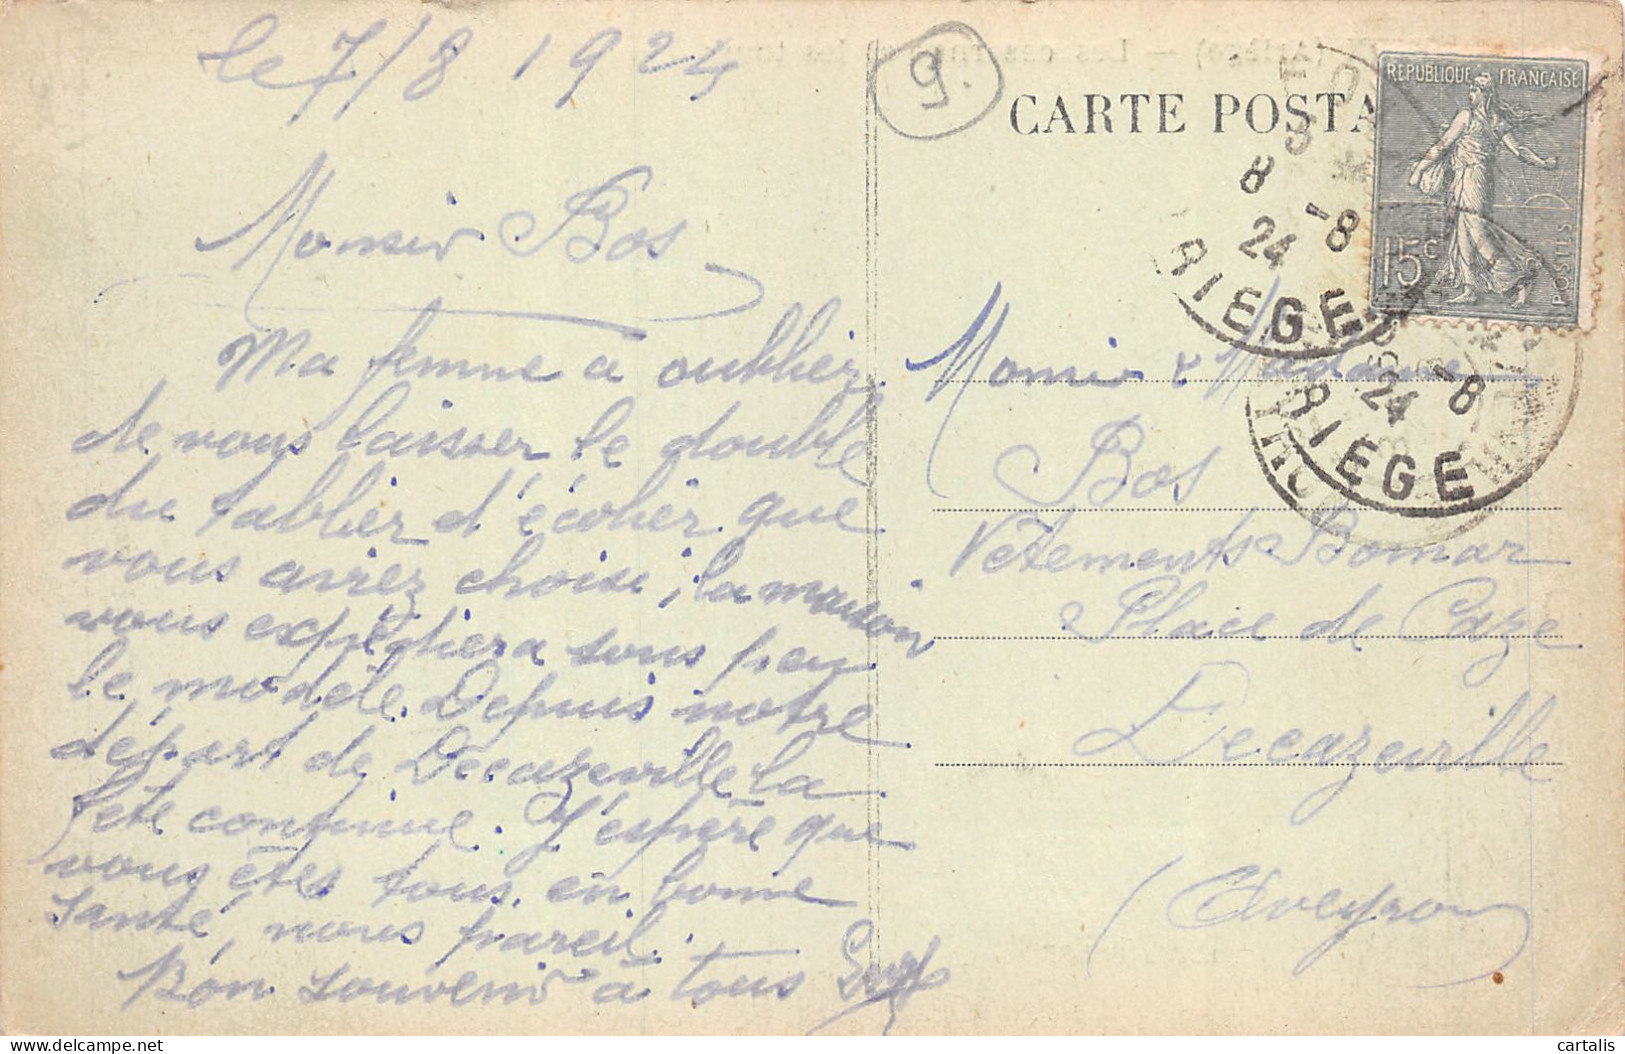 le 7/8 1924
9.
CARTE POSTA
REPUBLIQUE FRANÇAISE
15c
POSTES
8
8 -8
24
ARIEGE
-8
24
ARIEGE
Monsieur Bos
Ma femme a oubliez
de vous laisser le double
du tablier d'écolier que
vous avez choisi, la maison
vous expédiera sous peu
le modèle. Depuis notre
départ de Decazeville la
fête continue. J'espère que
vous êtes tous en bonne
santé, nous pareil.
Bon souvenir à tous
Monsieur & Madame
Bos
Vêtements Bomar
Place de Caze
Decazeville
(Aveyron)
cartalis
delcampe.net